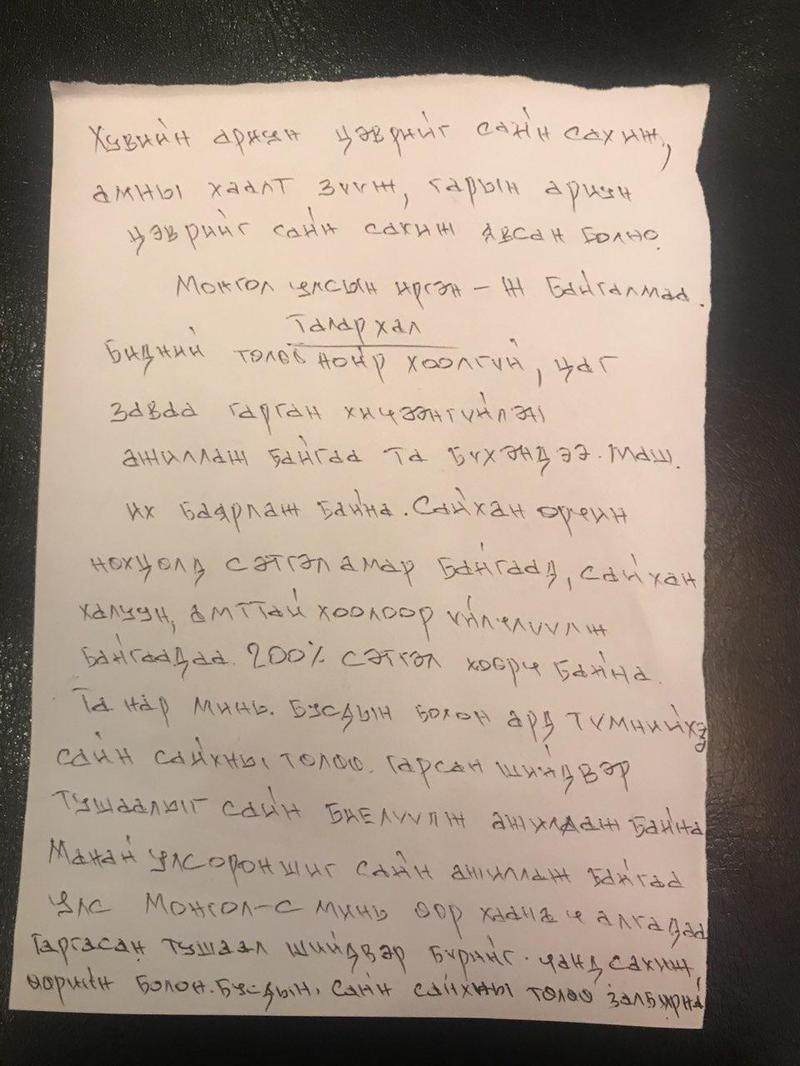 Хувийн ариун цэврийг сайн сахиж,
амны хаалт зүүж, гарын ариун
цэврийг сайн сахиж явсан болно.
Монгол улсын иргэн – Ж Байгалмаа.
Талархал
Бидний төлөө нойр хоолгүй, цаг
заваа гарган хичээнгүйлэн
ажиллаж байгаа та бүхэндээ. Маш.
их баярлаж байна. Сайхан орчин
нөхцөлд сэтгэл амар байгаад, сайхан
халуун, амттай хоолоор үйлчлүүлж
байгаадаа. 200% сэтгэл хөөрч байна.
Та нар минь. Бусдын болон ард түмнийхээ
сайн сайхны төлөө. Гарсан шийдвэр
тушаалыг сайн биелүүлж ажилдаж байна
Манай улсорон шиг сайн ажиллаж байгаа
улс Монгол-с минь өөр хаана ч алгадаа
Гаргасан тушаал шийдвэр бүрийг. чанд сахиж
өөрийн болон. Бусдын. сайн сайхны төлөө залбирна